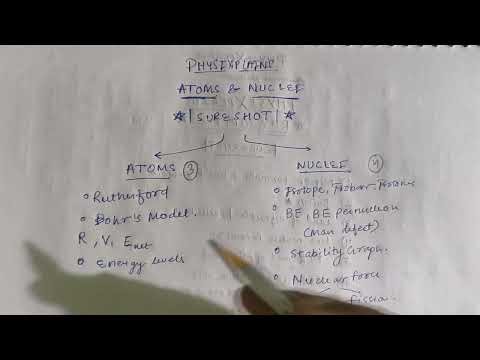 PHYSEXPLAINS
ATOMS & NUCLEI
☆|SURESHOT|☆
ATOMS ③
Rutherford
Bohr's Model.
R, V, Enet
Energy levels
NUCLEI ④
Isotope, Isobar, Isotone
BE, BE per nucleon
(Mass defect)
Stability Graph.
Nuclear force
fission.